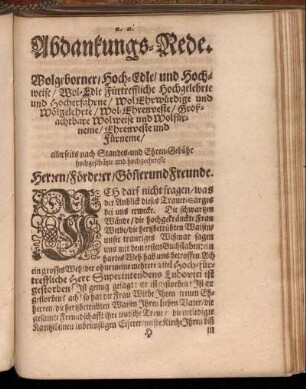 Abdankungs-Rede.
Wolgeborner/ Hoch-Edle/ und Hoch-
weise/ Wol-Edle Fürtreffliche Hochgelehrte
und Hocherfahrne/ Wol Ehrwürdige und
Wolgelehrte/ Wol-Ehrenveste/ Groß-
achtbare Wolweise und Wolfür-
neme/ Ehrenveste und
Fürneme/
allerseits nach Standes-und Ehren-Gebühr
hochgeschätzte und hochgeehrteste
Herren/ Förderer/ Göner und Freunde.
ICH darf nicht fragen/ was
der Anblick dieses Traur-Sarges
bei uns erweckt. Die schwartzen
Wände/ die hochgekränkte Frau
Witbe/ die hertzbetrübten Waisen/
unser trauriges Wißmar sagen
uns mit den ersten Buchstaben: ein
hartes Weh hat uns betroffen. Ach
ein grosses Weh/ der Hochfür-
treffliche Herr Superintendens Ludovici ist
gestorben! Ist genug gesagt: er ist gestorben! Ist er
gestorben? ach! so hat die Frau Witbe Ihren Eh-
herren/ die hertzbetrübten Waisen Ihren lieben Vater/ die
gesamte Freundschaft ihre teutsche Treue/ die entledigte
Kantzel einen inbrünstigen Eiferer/ unsre Kirche Ihren biß
H
in